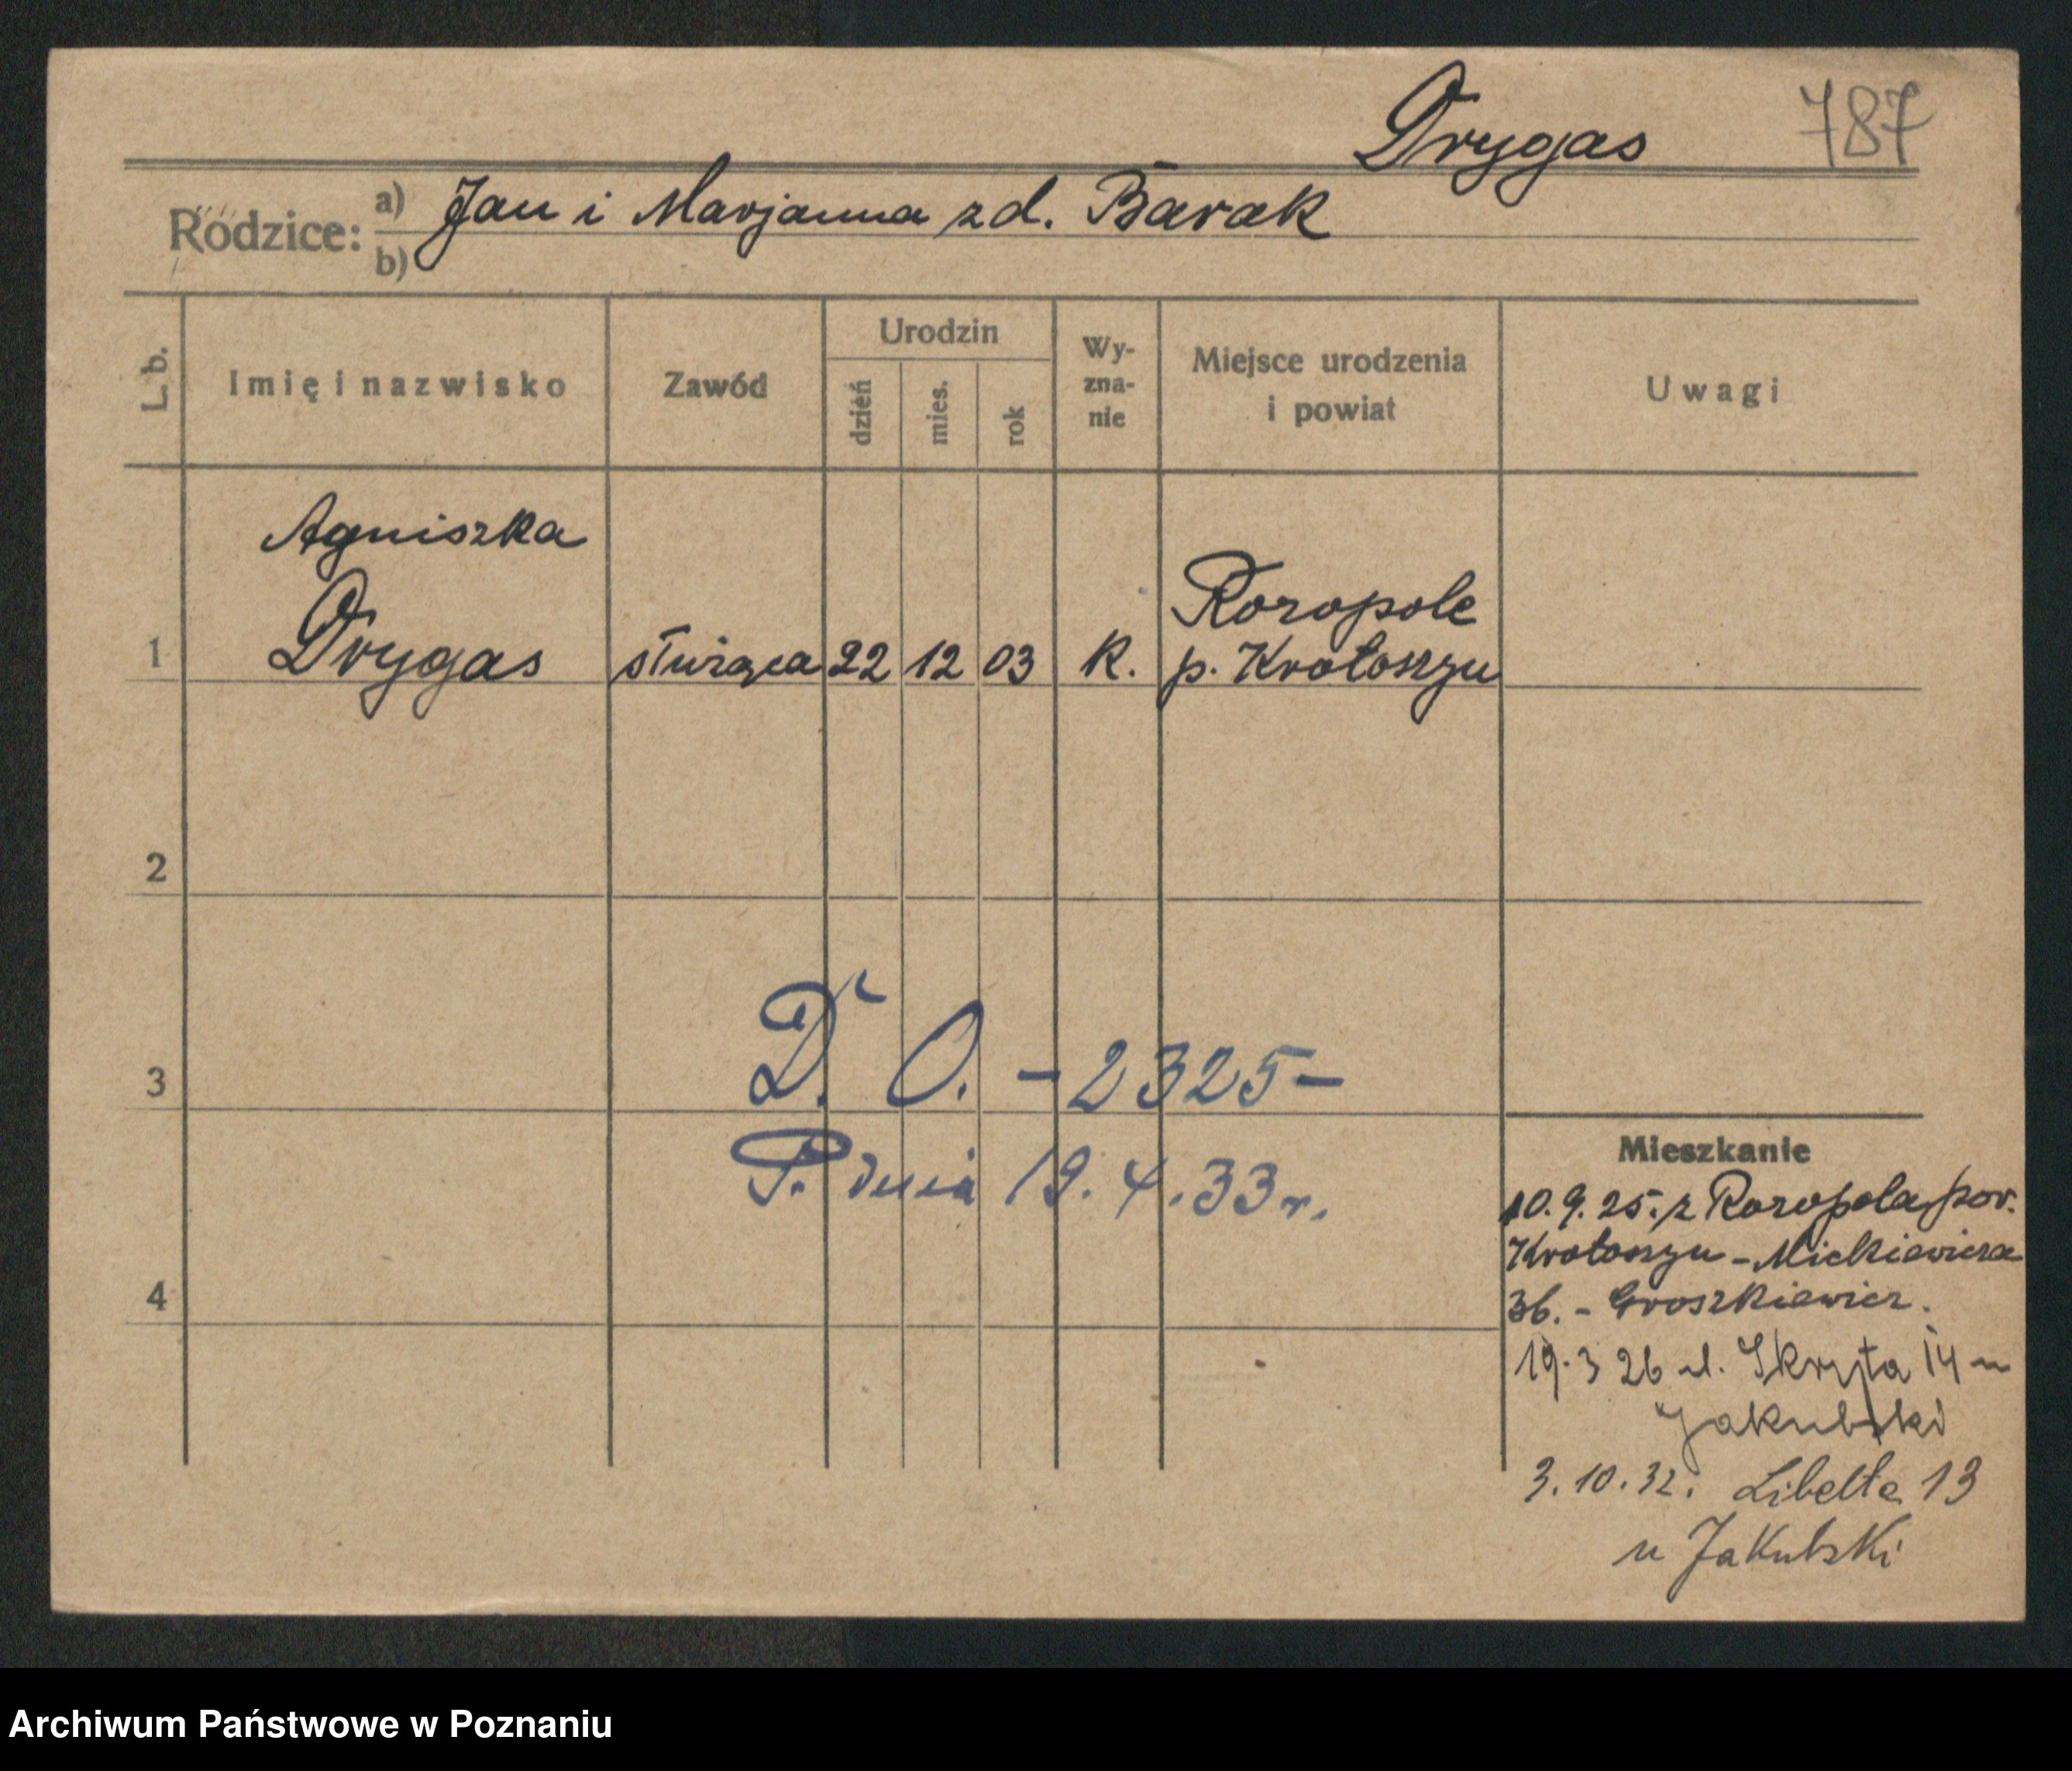 Drygas 787
Rodzice: a) Jan i Marjanna zd. Barak
b)
L. b. Imię i nazwisko Zawód Urodzin dzień mies. rok Wy-zna-nie Miejsce urodzenia i powiat Uwagi
Agniszka
Rozopole
1 Drygas służąca 22 12 03 k. p. Krotoszyn
2
3 D. O. -2325-
P. dnia 19.4.33 r.
4
Mieszkanie
10.9.25. z Rozopola pow.
Krotoszyn - Mickiewicza
36. - Groszkiewicz.
19.3 26 ul. Skryta 14 u
Jakubski
3.10.32. Libelta 13
u Jakubski
Archiwum Państwowe w Poznaniu